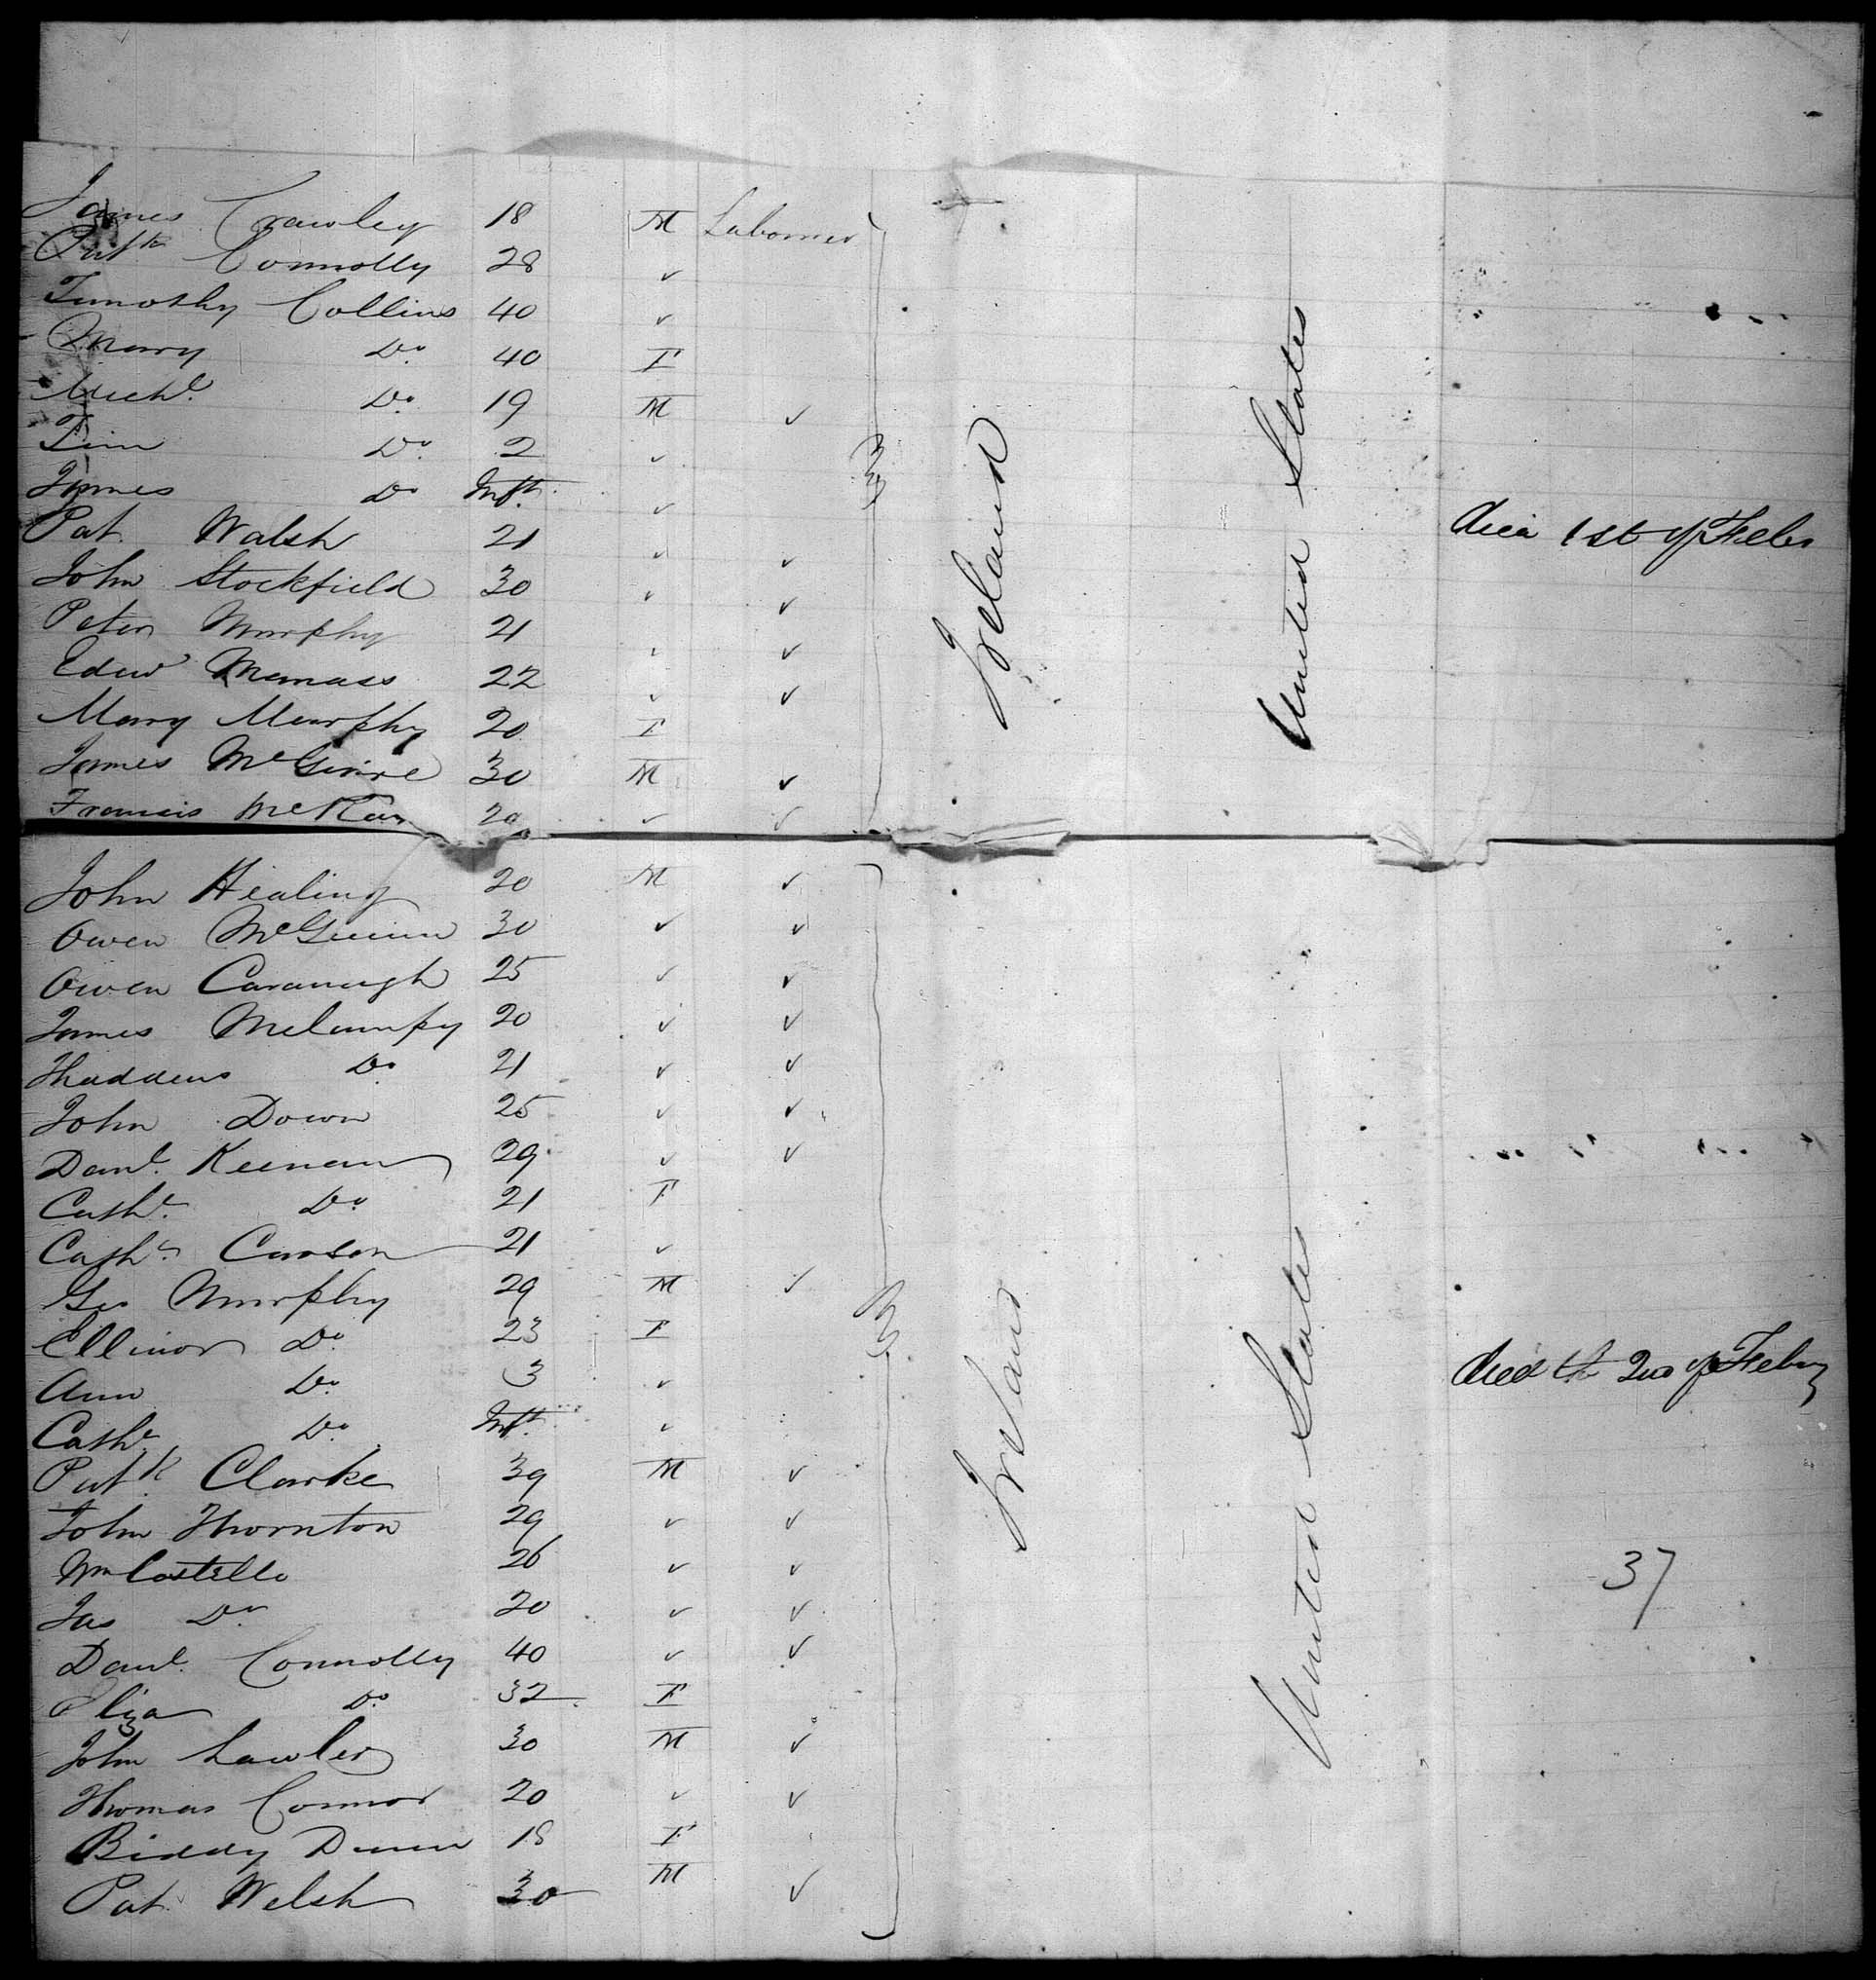 James Crawley 18 M Labourer
Patk Connolly 28 ✓
Timothy Collins 40 ✓
Mary Do 40 F
Michl. Do. 19 M ✓
Tim Do. 2 ✓
James Do Inft. ✓
Pat. Walsh 21 ✓ ✓ died 1st of Feby
John Stockfield 30 ✓ ✓
Peter Murphy 21 ✓ ✓
Edwd Manass 22 ✓ ✓
Mary Murphy 20 F
James McGuire 30 M ✓
Francis 20 ✓ ✓
Ireland
United States
John Healing 20 M ✓
Owen McGuinn 30 ✓ ✓
Owen Cavanugh 25 ✓ ✓
James Melumpy 20 ✓ ✓
Thaddeus Do. 21 ✓ ✓
John Down 25 ✓ ✓
Danl. Keenan 29 ✓ ✓
Cathe. Do. 21 F
Cathe Carson 21 ✓
Geo Murphy 29 M ✓
Ellinor Do. 23 F
Ann Do. 3 ✓ died the 2nd of Feby
Cathe. Do. Inft. ✓
Patk. Clarke 39 M ✓
John Thornton 29 ✓ ✓
Wm Costello 26 ✓ ✓
Jas Do. 20 ✓ ✓
Danl. Connolly 40 ✓ ✓
Eliza Do. 32 F
John Lawler 30 M ✓
Thomas Connor 20 ✓ ✓
Biddy Dunn 18 F
Pat. Welsh 30 M ✓
Ireland
United States
37